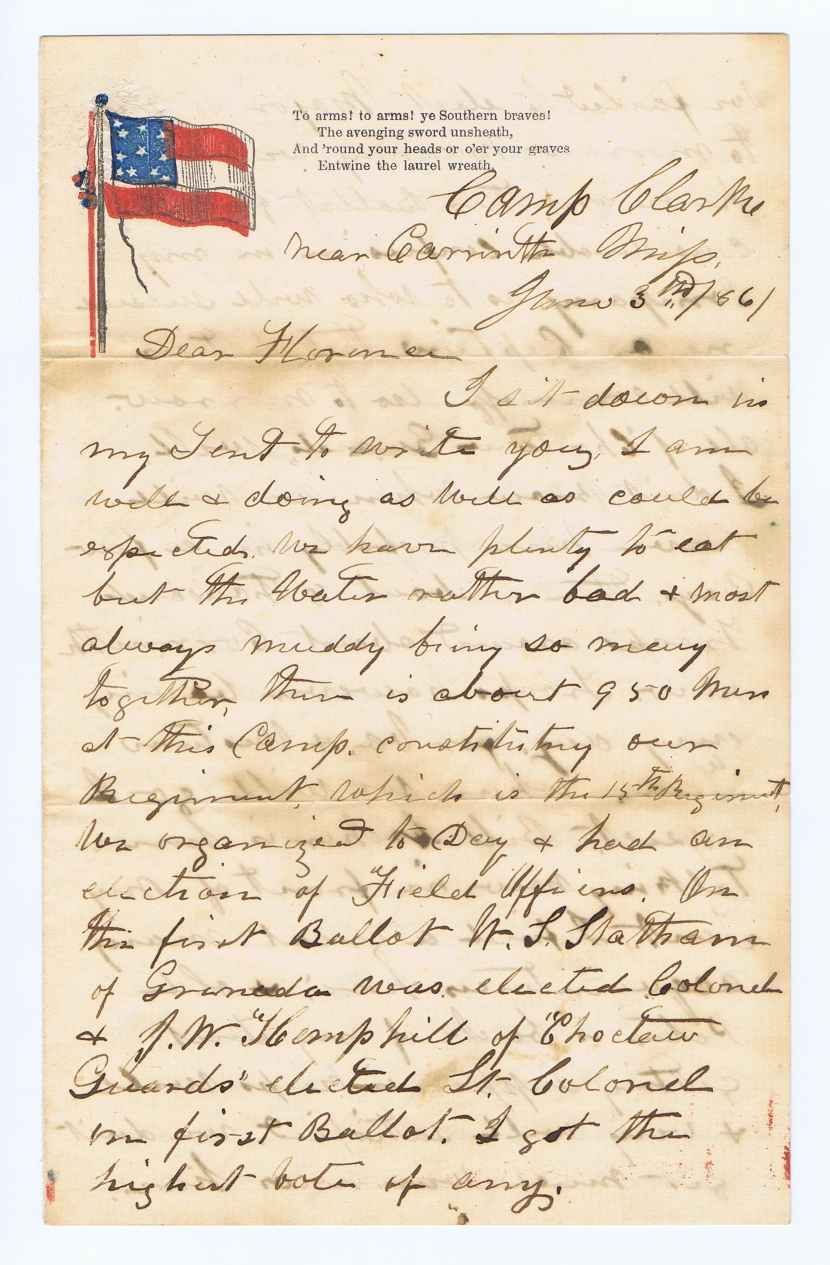 To arms! to arms! ye Southern braves!
The avenging sword unsheath,
And 'round your heads or o'er your graves
Entwine the laurel wreath.
Camp Clarke
near Corrinth Miss,
June 3rd/861
Dear Florence
I sit down in
my Tent to write you, I am
well & doing as well as could be
expected. We have plenty to eat
but the Water rather bad & most
always muddy being so many
together, there is about 950 Men
at this Camp. constituting our
Regiment, which is the 15th Regiment,
We organized to Day & had an
election of Field Officers. On
the first Ballot W. S. Statham
of Grenada was elected Colonel
& J. W. Hemphill of "Choctaw
Guards" elected Lt. Colonel
on first Ballot. I got the
highest vote of any.